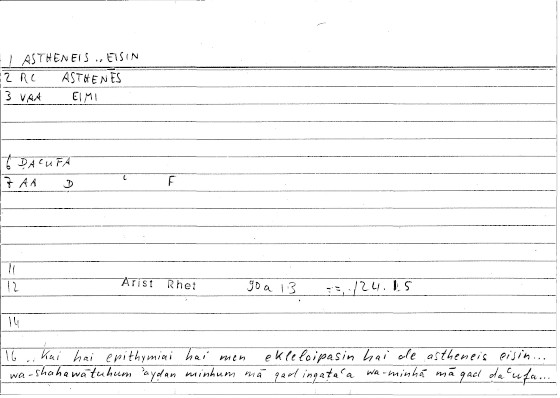 1 ASTHENEIS .. EISIN
2 RC ASTHENĒS
3 VAA EIMI
6 ḌAʿUFA
7 AA Ḍ ʿ F
11
12 Arist Rhet 90a 13 124. 15
14
16 .. Kai hai epithymiai hai men ekleloipasin hai de astheneis eisin...
wa-shahawātuhum ʾayḍan minhum mā qad inqaṭaʿa wa-minhā mā qad ḍaʿufa...